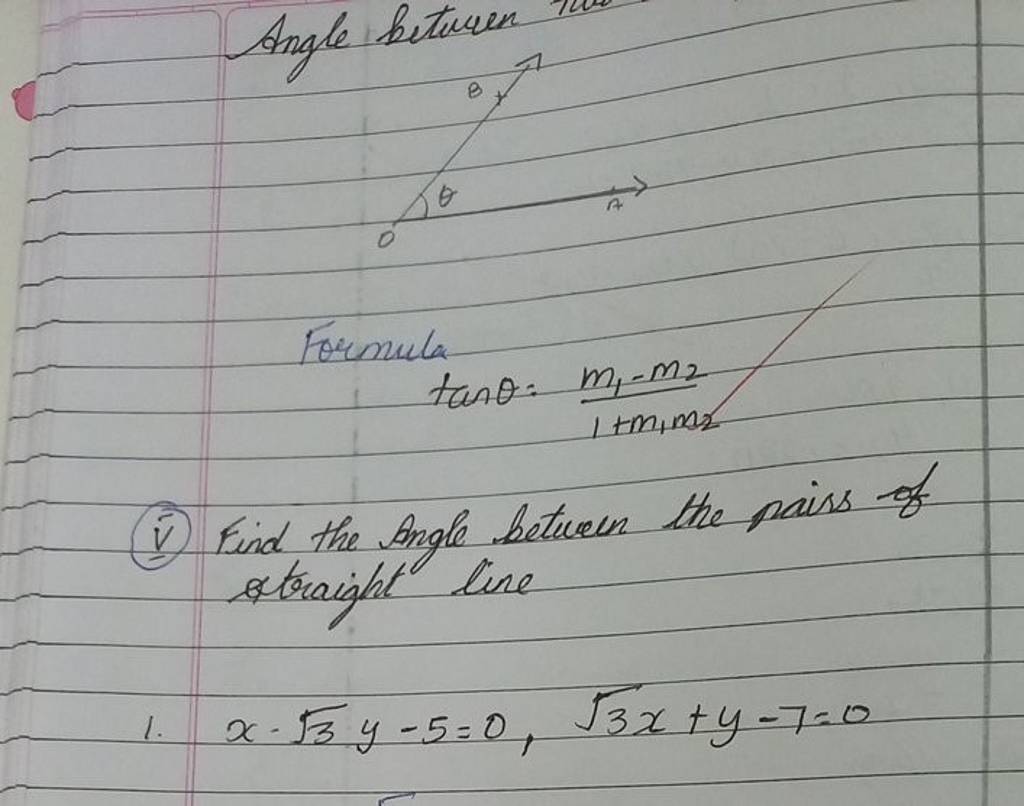 Angle between
B
θ
A
O
Formula
tanθ = m₁-m₂ / 1+m₁m₂
v Find the Angle between the pairs of
straight line
1. x - √3 y - 5 = 0, √3x + y - 7 = 0